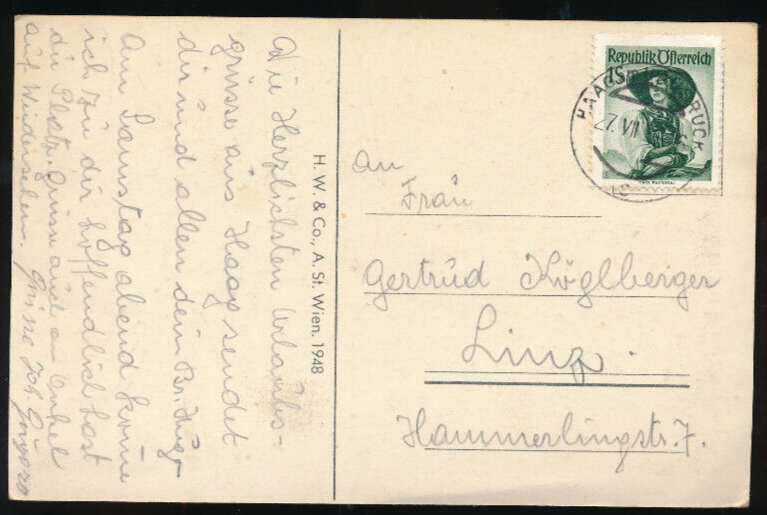 Die Herzlichsten Urlaubs-
grüsse aus Haag sendet
dir und allen dein Br. Hugo
Am Samstag abend komme
ich zu dir hoffendlich hast
du Platz. Grüsse auch an Onkel
auf Wiedersehen. Grüsse
H. W. & Co., A. St. Wien. 1948
Republik Österreich
1S
HAAG RUCK
27. VII
an
Frau
Gertrud Köglberger
Linz.
Hammerlingstr. 7.